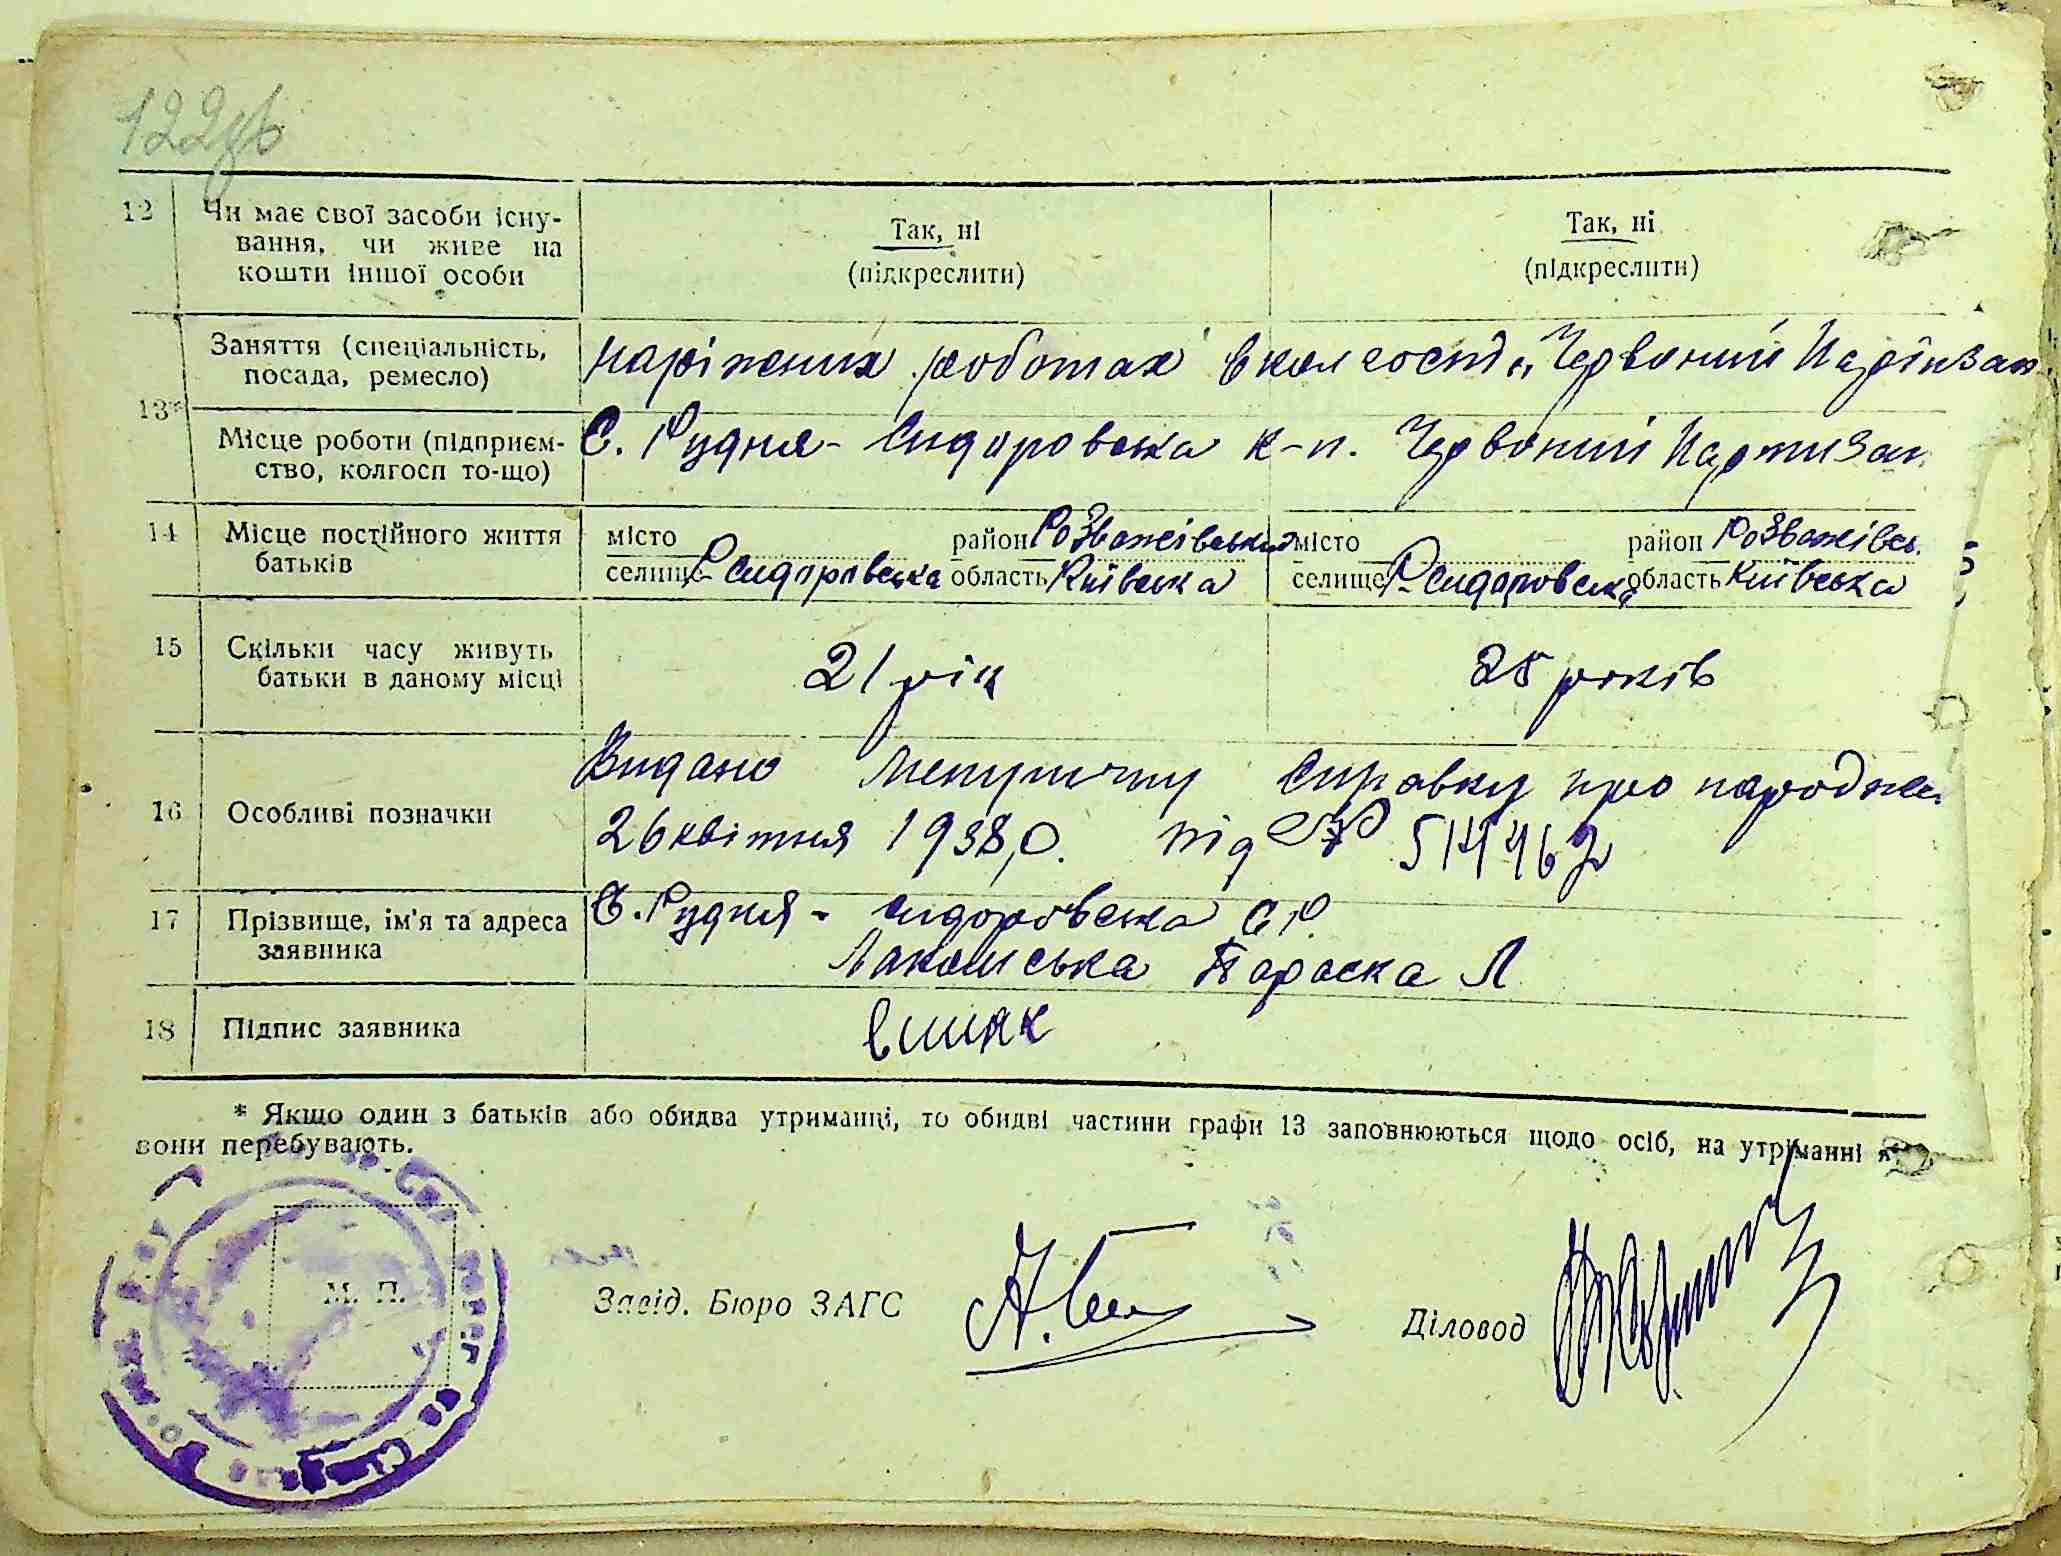 122зв
12 Чи має свої засоби існу-
вання, чи живе на
кошти іншої особи
Так, ні
(підкреслити)
Так, ні
(підкреслити)
13*
Заняття (спеціальність,
посада, ремесло)
на різених роботах в колгоспі „Червоний Партизан
Місце роботи (підприєм-
ство, колгосп то-що)
С. Рудня-Сидоровська к-п. Червоний Партизан
14 Місце постійного життя
батьків
місто район Розважівський
селище Р-Сидоровська область Київська
місто район Розважівсь.
селище Р-Сидоровська область Київська
15 Скільки часу живуть
батьки в даному місці
21 рік
25 років
16 Особливі позначки
Видано справку про народжен
26 квітня 1938 р. під №
17 Прізвище, ім'я та адреса
заявника
С. Рудня-Сидоровська с/Р.
Параска Л
18 Підпис заявника
* Якщо один з батьків або обидва утриманці, то обидві частини графи 13 заповнюються щодо осіб, на утриманні я
вони перебувають.
М. П.
Завід. Бюро ЗАГС
Діловод